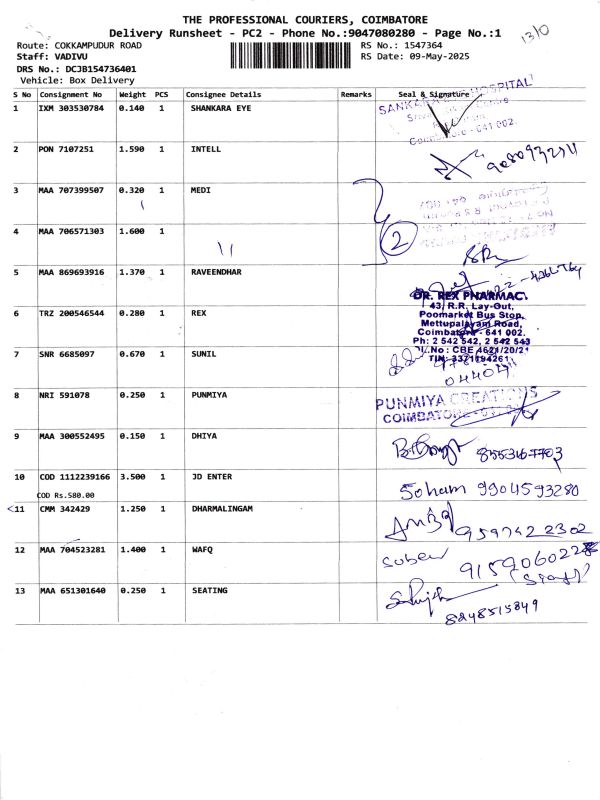 THE PROFESSIONAL COURIERS, COIMBATORE
Delivery Runsheet - PC2 - Phone No.:9047080280 - Page No.:1
13/0
Route: COKKAMPUDUR ROAD
RS No.: 1547364
Staff: VADIVU
RS Date: 09-May-2025
DRS No.: DCJB154736401
Vehicle: Box Delivery
S No Consignment No Weight PCS Consignee Details Remarks Seal & Signature
1 IXM 303530784 0.140 1 SHANKARA EYE
SANKARA EYE HOSPITAL
Centre
Coimbatore - 641 002.
2 PON 7107251 1.590 1 INTELL
3 MAA 707399507 0.320 1 MEDI
4 MAA 706571303 1.600 1 \\
2
5 MAA 869693916 1.370 1 RAVEENDHAR
6 TRZ 200546544 0.280 1 REX
DR. REX PHARMACY
43, R.R. Lay-Out,
Poomarket Bus Stop,
Mettupalayam Road,
Coimbatore - 641 002.
Ph: 2 542 542, 2 542 543
7 SNR 6685097 0.670 1 SUNIL
04404
8 NRI 591078 0.250 1 PUNMIYA
PUNMIYA CREATIONS
COIMBATORE
9 MAA 300552495 0.150 1 DHIYA
10 COD 1112239166 3.500 1 JD ENTER
COD Rs.580.00
Soham 9904593280
11 CMM 342429 1.250 1 DHARMALINGAM
9597422302
12 MAA 704523281 1.400 1 WAFQ
13 MAA 651301640 0.250 1 SEATING
8248515849